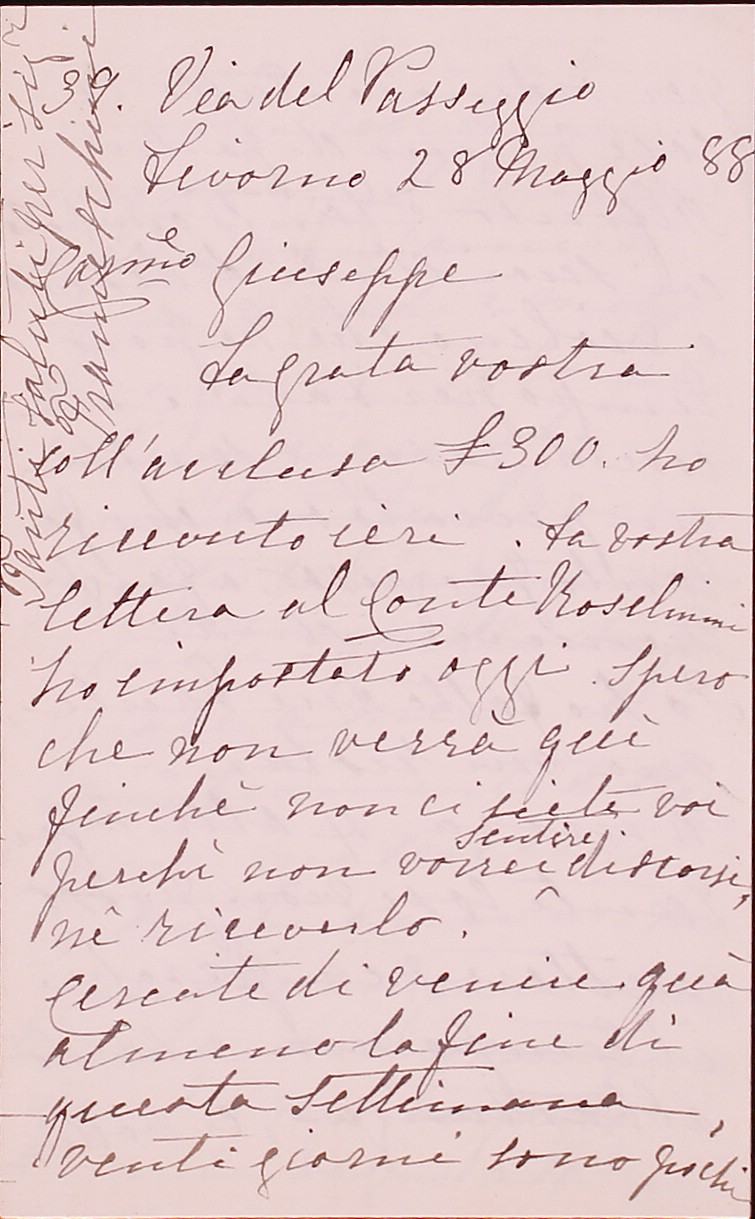 39. Via del Passeggio
Livorno 28 Maggio 88
Carmo Giuseppe
La grata vostra
coll'acclusa £300. ho
ricevuto ieri. La vostra
lettera al Conte Roselmini
ho impostato oggi. Spero
che non verrà quì
finchè non ci siete voi
perchè non vorrei sentire discorsi,
nè riceverlo.
Cercate di venire quà
almeno la fine di
questa settimana,
venti giorni sono pochi
Tanti saluti per Sigr
e